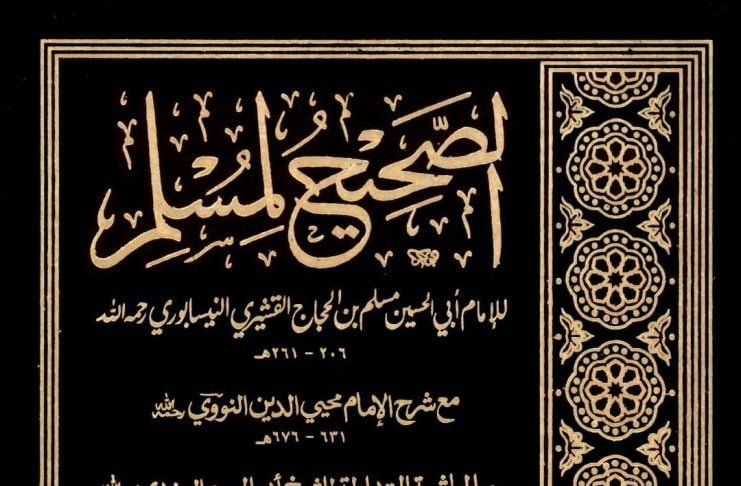 الصَّحِيحُ لِمُسْلِمٍ
للإمام أبي الحسين مسلم بن الحجاج القشيري النيسابوري رحمه الله
٢٠٦ - ٢٦١هـ
مع شرح الإمام محيي الدين النووي رحمه الله
٦٣١ - ٦٧٦هـ